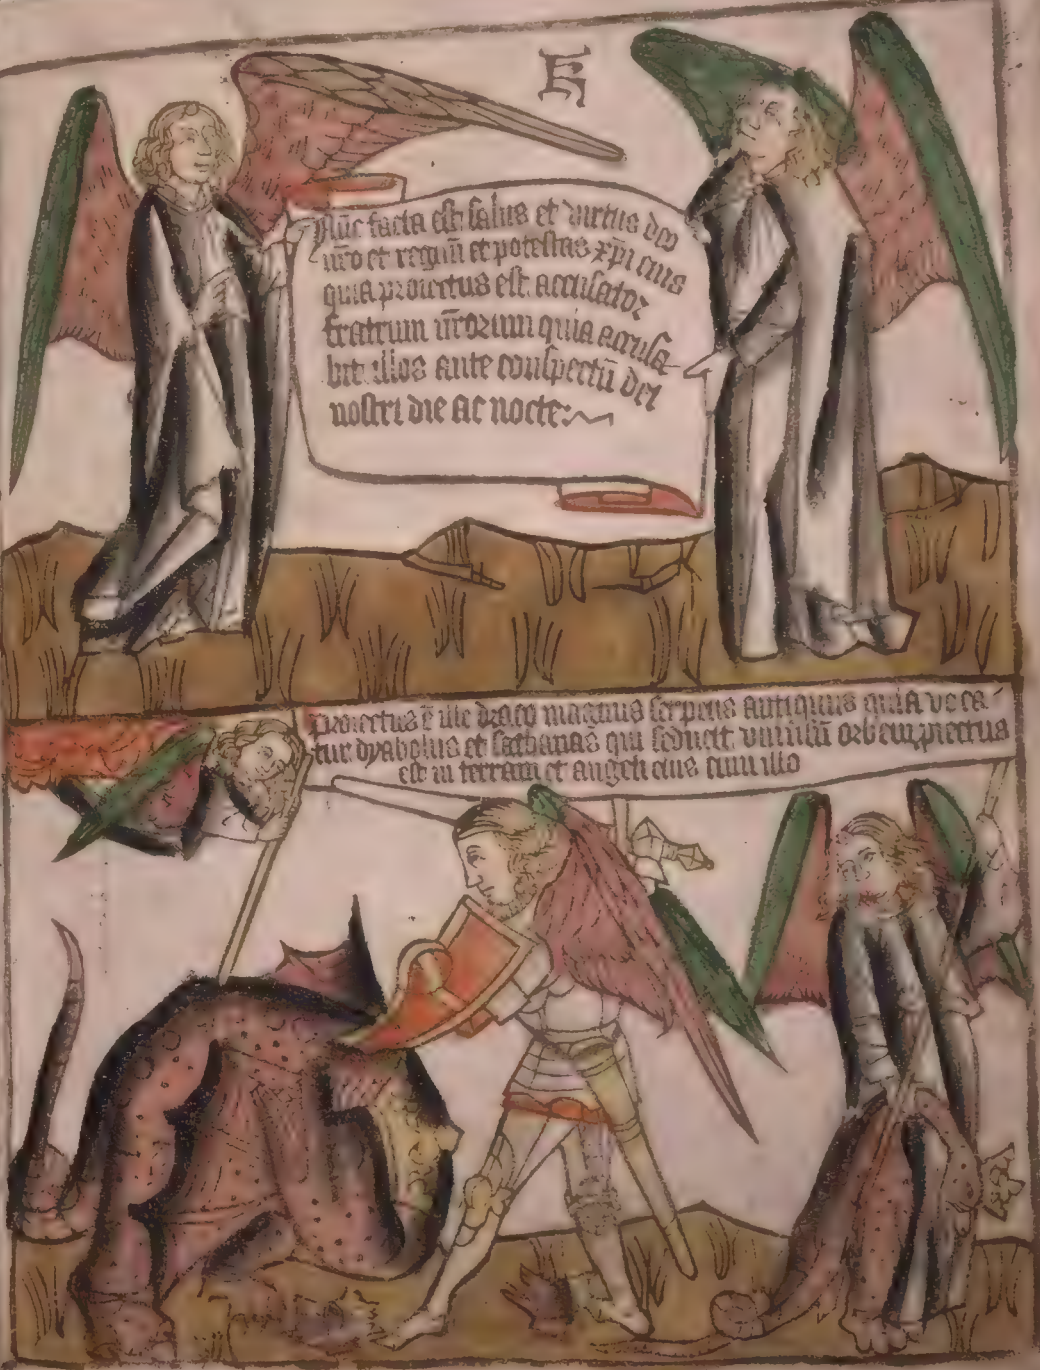 Nūc facta est salus et virtus deo
nr̄o et regnū et potestas xp̄i eius
quia proiectus est accusator
fratrum nr̄orum quia accusa
bit illos ante conspectū dei
nostri die ac nocte:
proiectus ē ille draco magnus serpens antiquus quia voca
tur dyabolus et sathanas qui seducit vniūsū orbem proiectus
est in terram et angeli eius cum illo